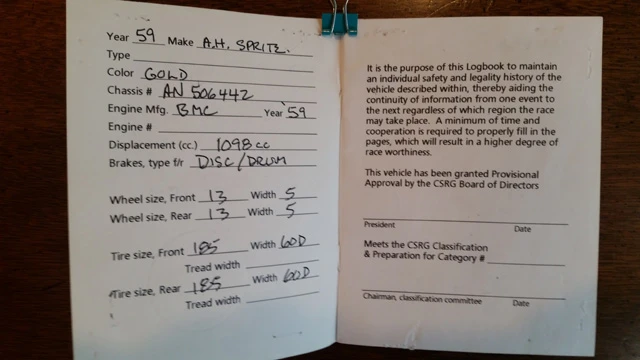 Year 59 Make A.H. SPRITE.
Type
Color GOLD
Chassis # AN 506442
Engine Mfg. BMC Year '59
Engine #
Displacement (cc.) 1098 cc
Brakes, type f/r DISC/DRUM
Wheel size, Front 13 Width 5
Wheel size, Rear 13 Width 5
Tire size, Front 185 Width 60D
Tread width
Tire size, Rear 185 Width 60D
Tread width
It is the purpose of this Logbook to maintain
an individual safety and legality history of the
vehicle described within, thereby aiding the
continuity of information from one event to
the next regardless of which region the race
may take place. A minimum of time and
cooperation is required to properly fill in the
pages, which will result in a higher degree of
race worthiness.
This vehicle has been granted Provisional
Approval by the CSRG Board of Directors
President Date
Meets the CSRG Classification
& Preparation for Category #
Chairman, classification committee Date